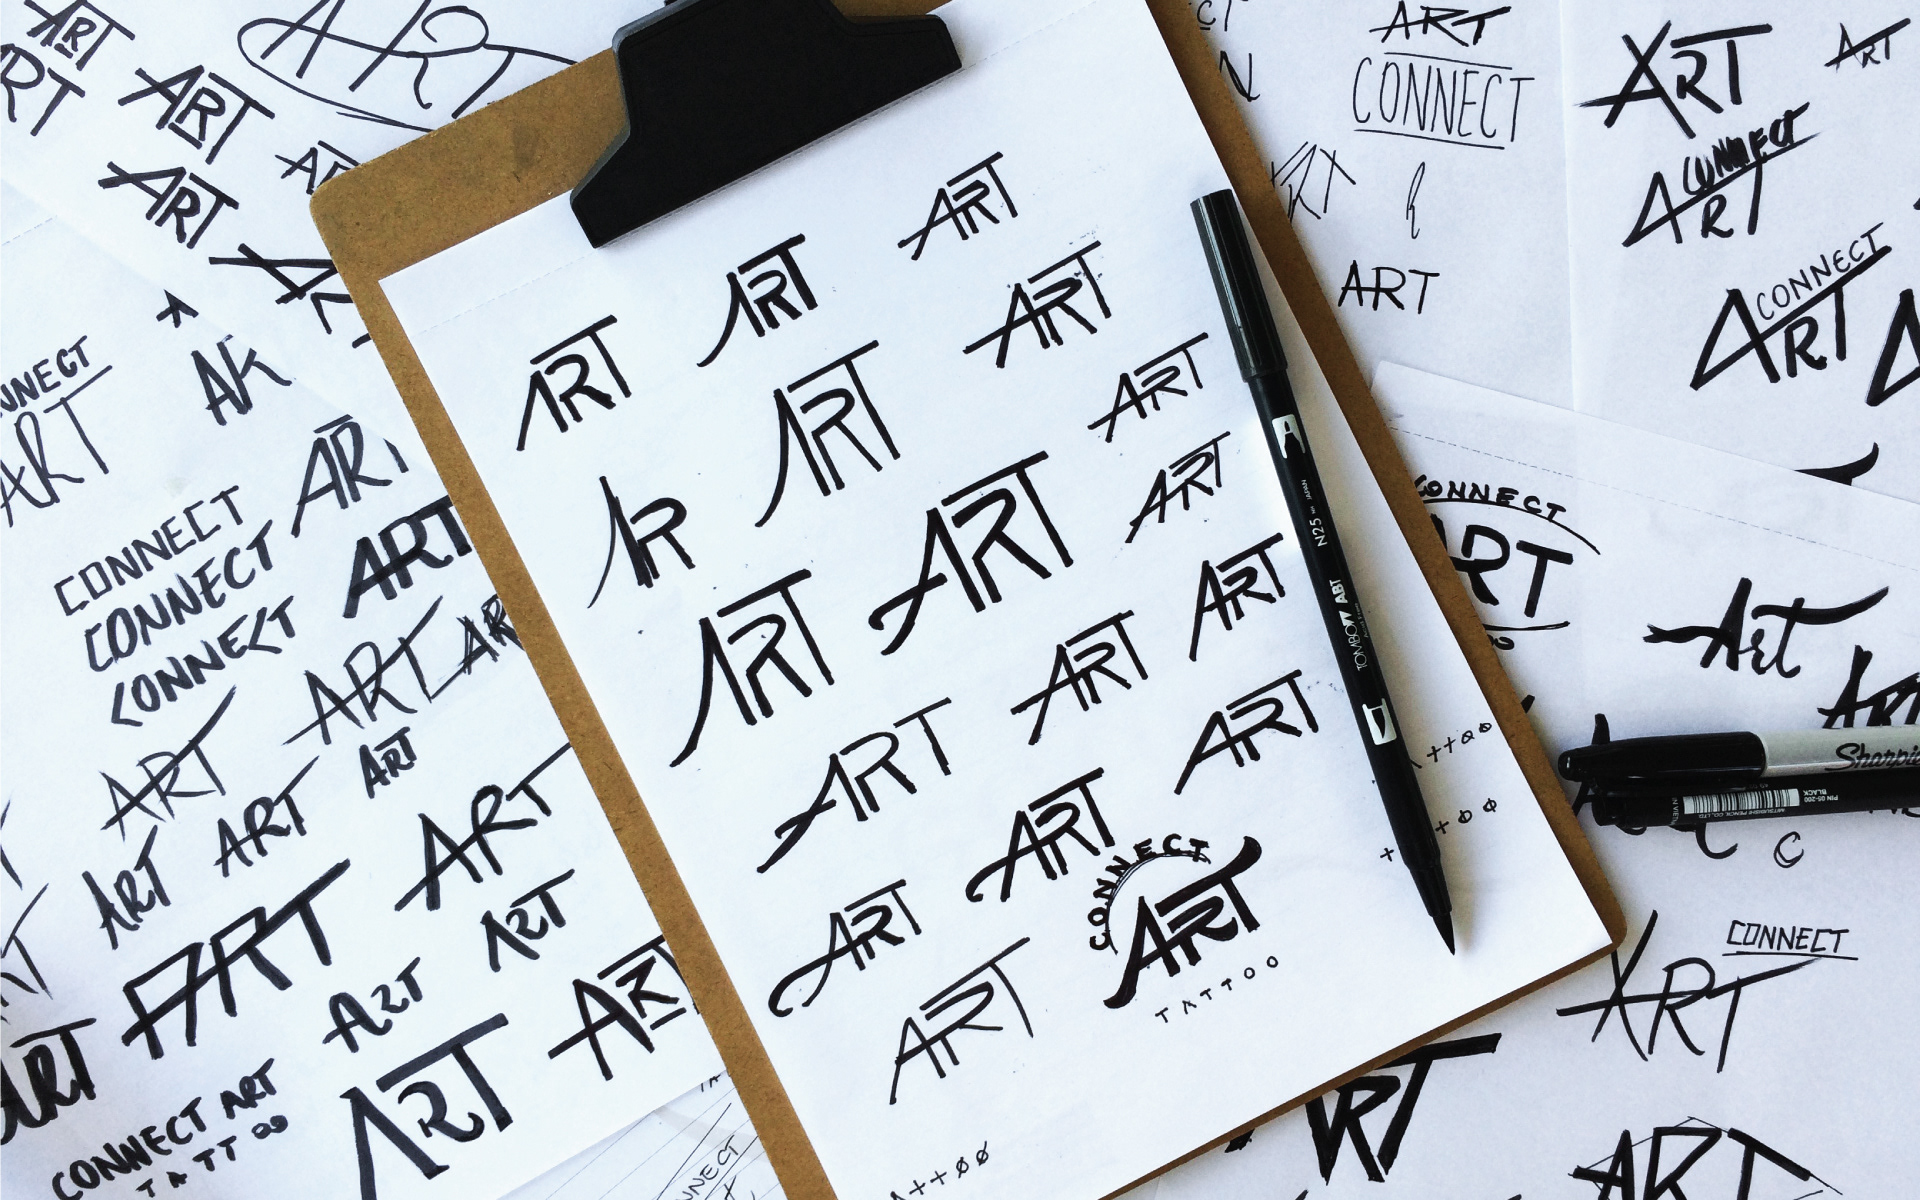 ART
ART
ART
ART
ART
ART
CONNECT
ART
ART
ART
CONNECT
ART
ART
CONNECT
ART
ART
ART
ART
ART
ART
ART
ART
AR
ART
ART
ART
ART
ART
ART
ART
ART
ART
ART
ART
CONNECT
ART
TATTOO
A++ØØ
N25
JAPAN
TOMBOW ABT
CONNECT
ART
Art
Sharpie
PIN 05-200
BLACK
C
CONNECT
ART
ART
ART
NNECT
ART
AR
ART
CONNECT
CONNECT
CONNECT
ART
ART
AR
ART
ART
ART
ART
ART
ART
ART
ART
ART
ART
ART
ART
CONNECT ART
TATTOO
NNECT